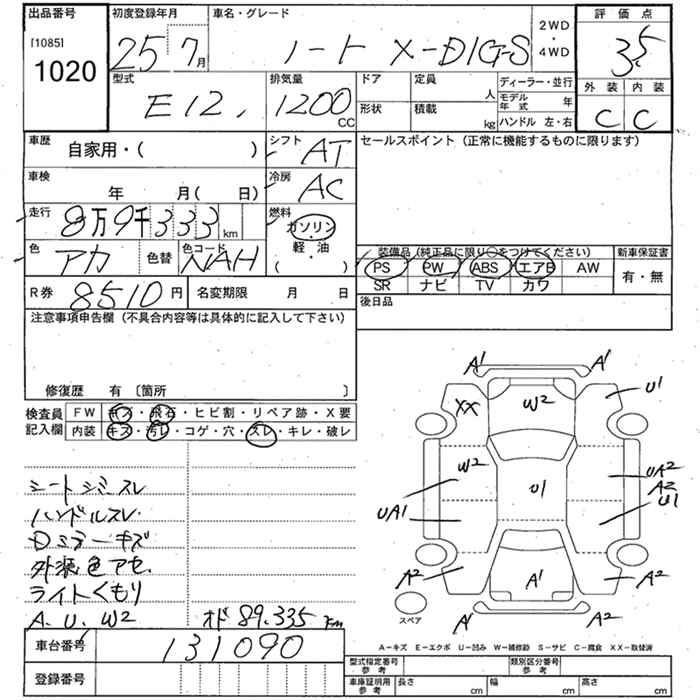 出品番号 初度登録年月 車名・グレード 2WD ・ 4WD 評価点
[1085]
1020
25 7月 ノート X-DIG-S 3.5
型式 排気量 ドア 定員 人 ディーラー・並行 外装 内装
E12, 1200 CC 形状 積載 kg モデル年式 年 C C
ハンドル 左・右
車歴 自家用・( ) シフト AT セールスポイント (正常に機能するものに限ります)
車検 年 月( 日) 冷房 AC
走行 8万9千333km 燃料 ガソリン・軽・油 ( )
色 アカ 色替 色コード NAH 装備品 (純正品に限り○をつけてください) 新車保証書
PS PW ABS エアB AW 有・無
SR ナビ TV カワ
R券 8510円 名変期限 月 日 後日品
注意事項申告欄 (不具合内容等は具体的に記入して下さい)
修復歴 有 〔箇所 〕
検査員記入欄 FW キズ・飛石・ヒビ割・リペア跡・X要
内装 キズ・汚レ・コゲ・穴・スレ・キレ・破レ
A1 A1
XX W2 U1
W2 UA2
A2
UA1 U1 U1
A2 A1 A2
A1 A2
スペア
シートシミ・スレ
ハンドルスレ
Dミラーキズ
外装色アセ
ライトくもり
A. U. W2 オド 89.335km
A-キズ E-エクボ U-凹み W-補修跡 S-サビ C-腐食 XX-取替済
車台番号 131090
登録番号
型式指定番号 参考 類別区分番号 参考
車庫証明用 参考 長さ cm 幅 cm 高さ cm